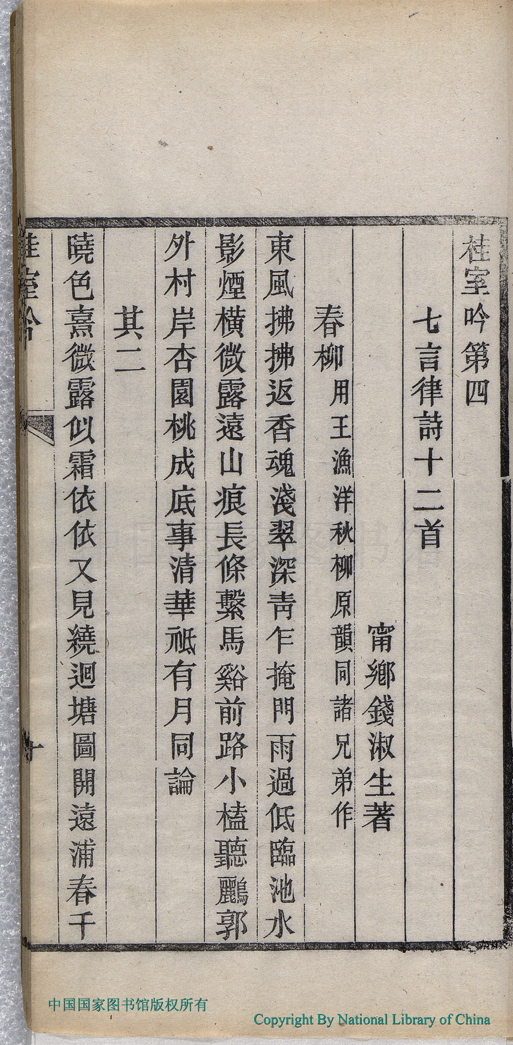 桂室吟第四
七言律詩十二首
甯鄉錢淑生著
春柳用王漁洋秋柳原韻同諸兄弟作
東風拂拂返香魂淺翠深靑乍掩門雨過低臨池水
影煙橫微露遠山痕長條繫馬谿前路小榼聽鸝郭
外村岸杏園桃成底事清華祗有月同論
其二
曉色熹微露似霜依依又見繞迴塘圖開遠浦春千
桂室吟
十
中国国家图书馆版权所有
Copyright By National Library of China